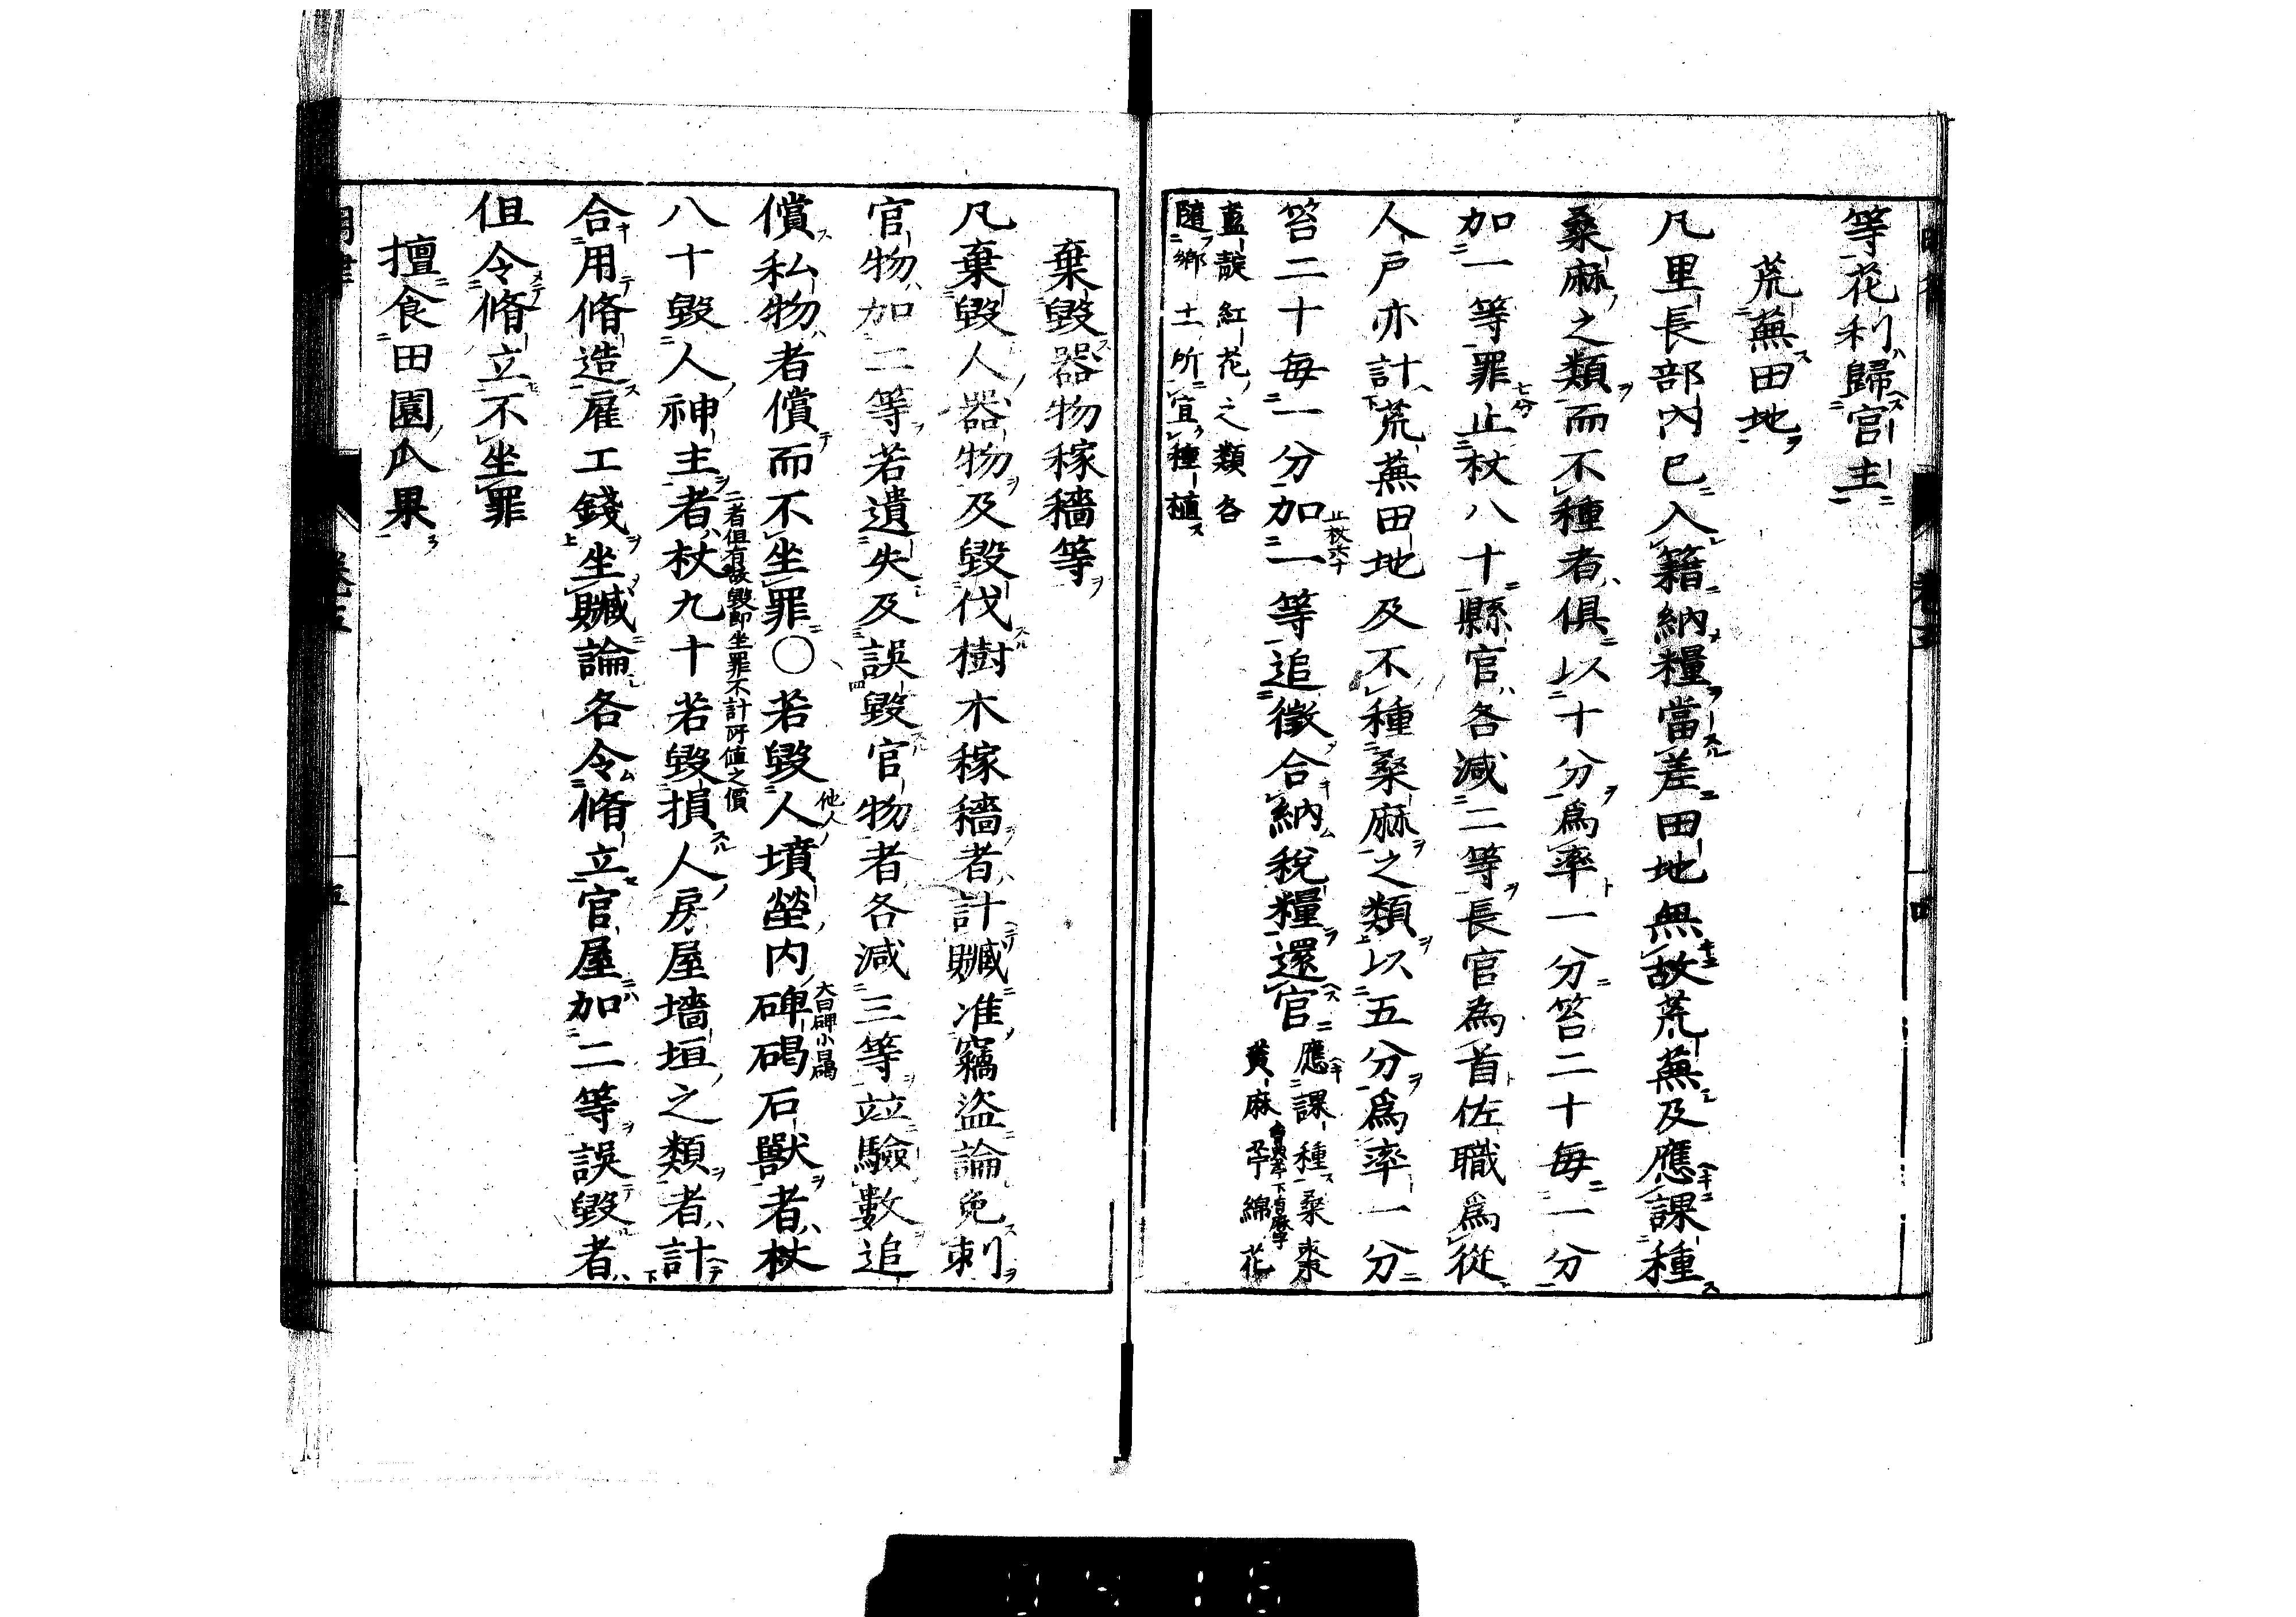 等花利歸官主
荒蕪田地
凡里長部內已入籍納糧當差田地無故荒蕪及應課種
桑麻之類而不種者俱以十分爲率一分笞二十每一分
加一等罪止杖八十縣官各減二等長官為首佐職爲從
人戶亦計荒蕪田地及不種桑麻之類以五分爲率一分
笞二十每一分加一等追徵合納稅糧還官
應課種桑棗
黃麻苧綿花
藍靛紅花之類各
隨鄉土所宜種植
七分
止杖六十
棄毀器物稼穡等
凡棄毀人器物及毀伐樹木稼穡者計贓准竊盜論免刺
官物加二等若遺失及誤毀官物者各減三等竝驗數追
償私物者償而不坐罪〇若毀人墳塋內碑碣石獸者杖
他人
大曰碑小曰碣
八十毀人神主者杖九十若毀損人房屋墻垣之類者計
二者但有故毀即坐罪不計所値之價
合用脩造雇工錢坐贓論各令脩立官屋加二等誤毀者
但令脩立不坐罪
擅食田園瓜果
卷五
五